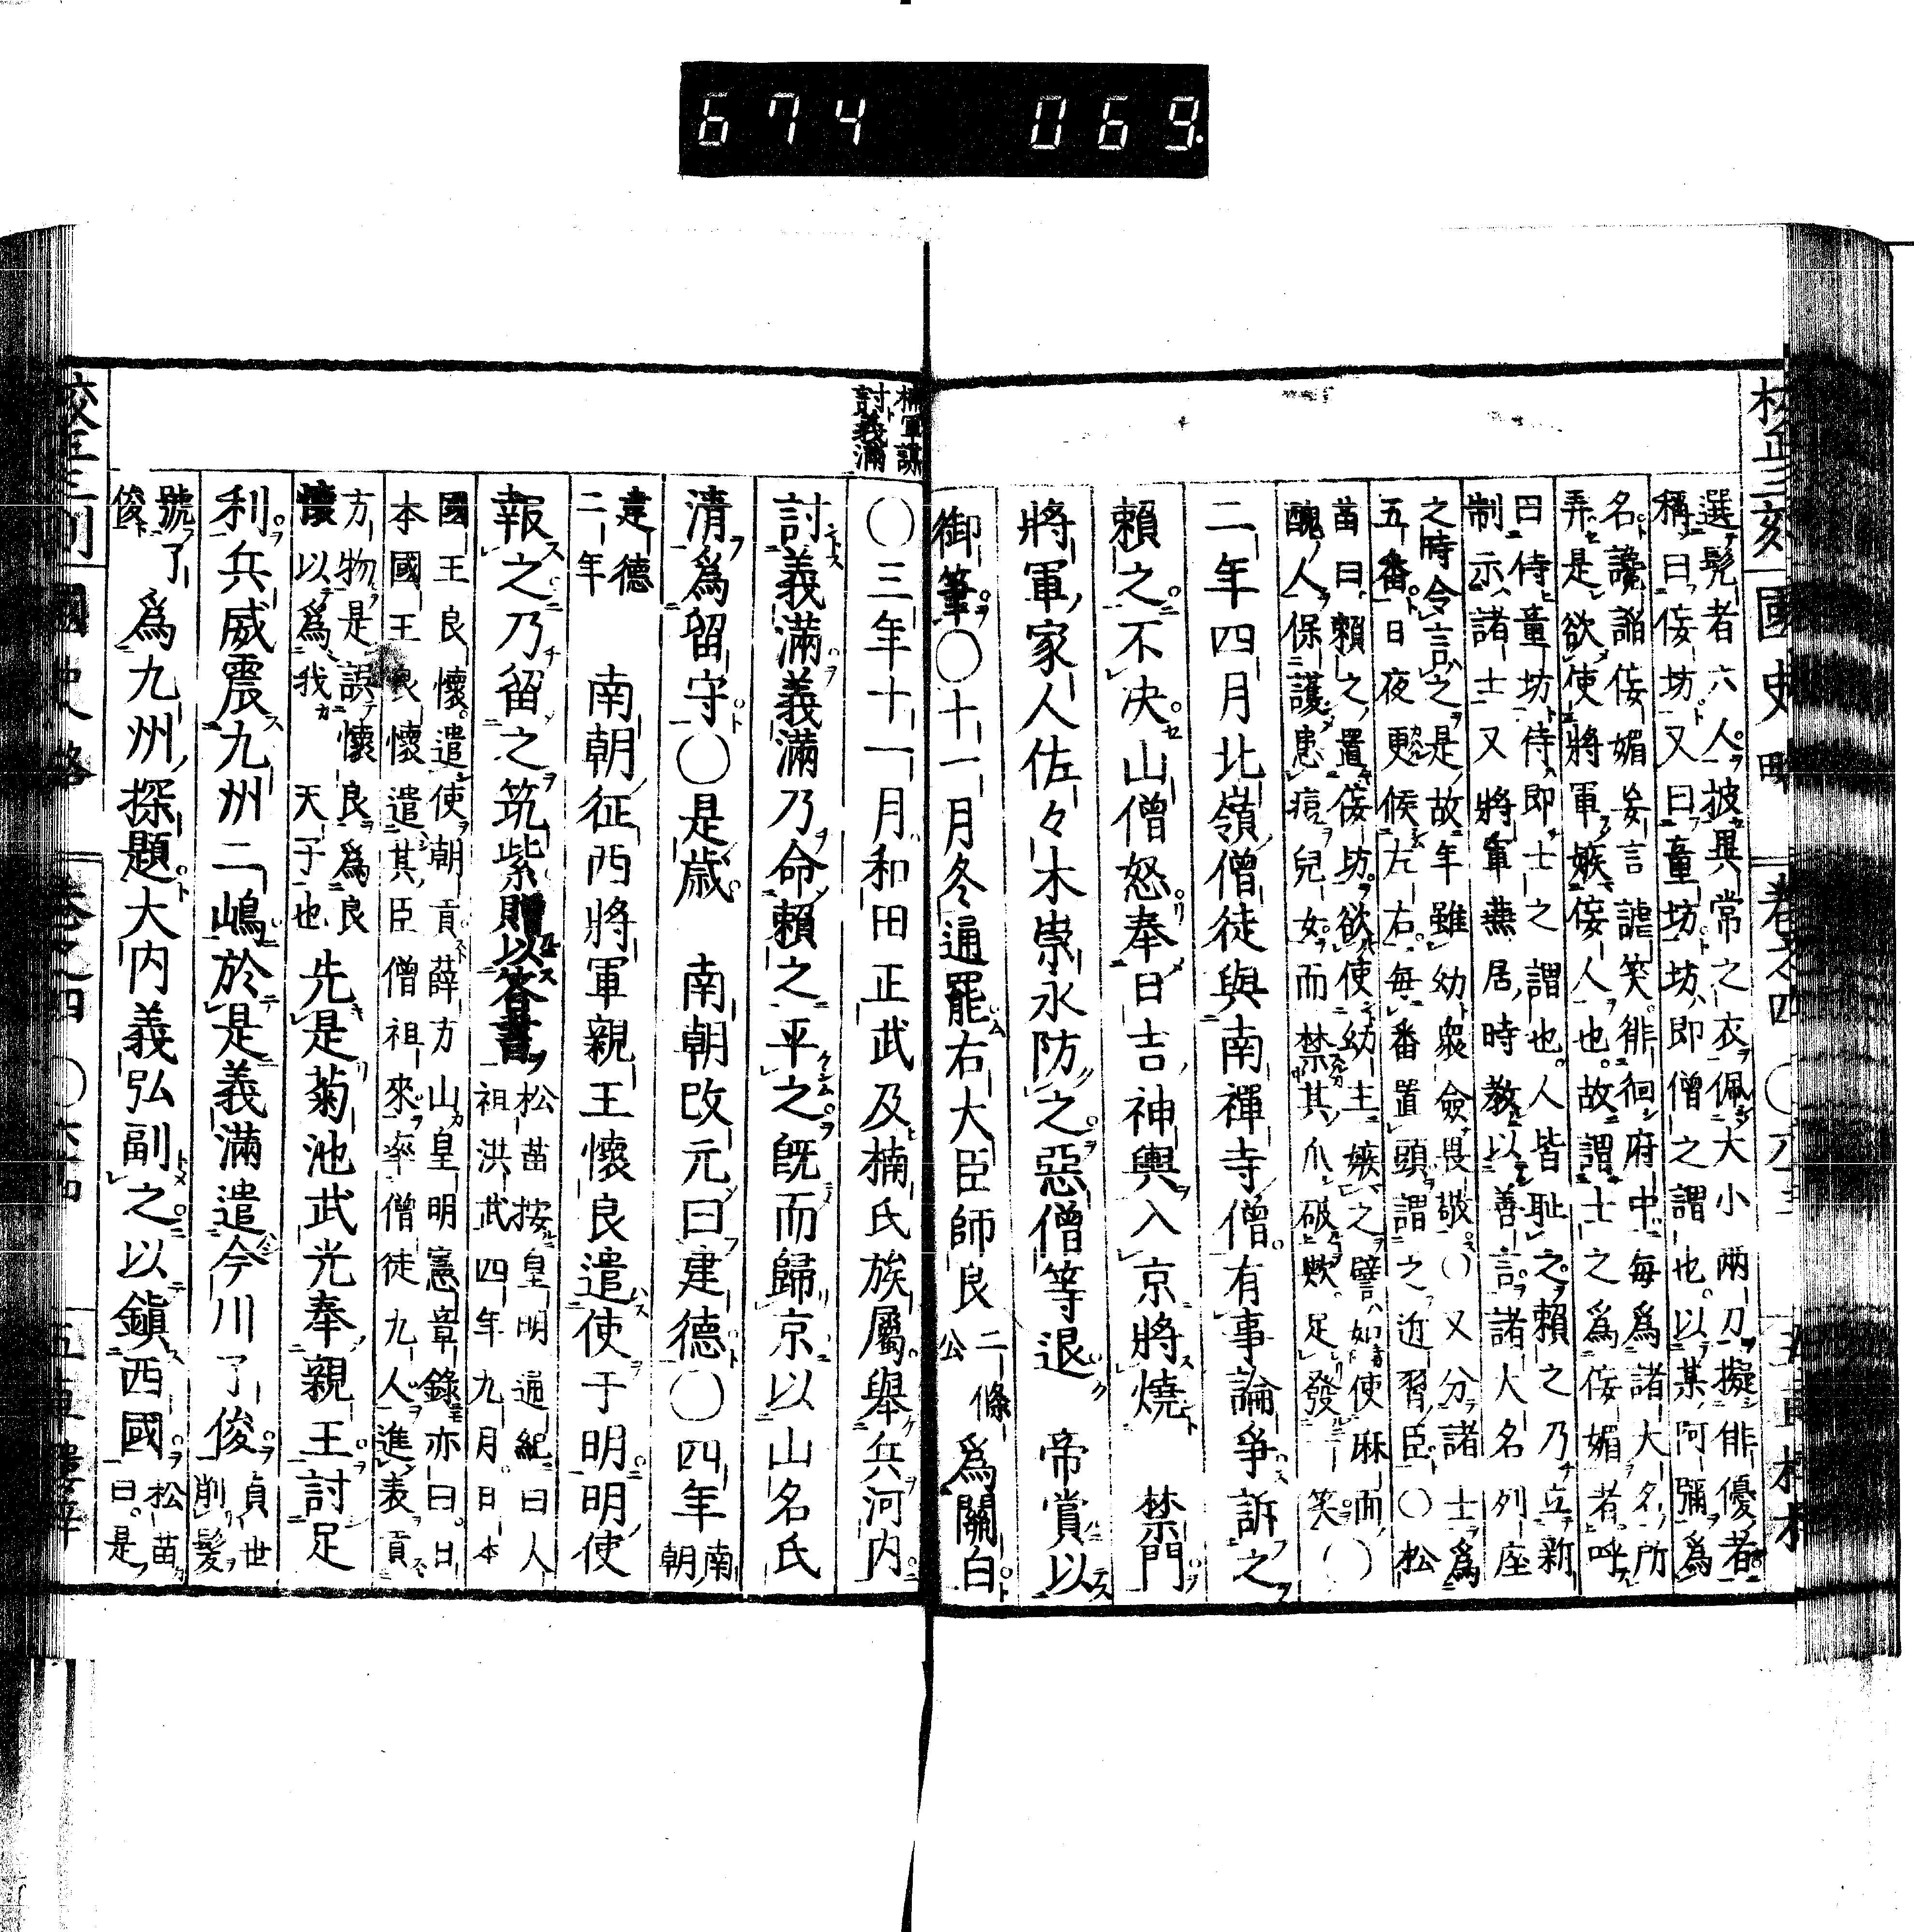 674 069
國史略 卷之四 ○
選髡者六人披異常之衣佩大小兩刀擬俳優者
稱曰侫坊又曰童坊坊即僧之謂也以某阿彌爲
名讒謟侫媚妄言謔笑徘徊府中毎爲諸大名所
弄是欲使將軍嫉侫人也故謂士之爲侫媚者呼
曰侍童坊侍即士之謂也人皆耻之賴之乃立新
制示諸士又將軍燕居時教以善言諸大名列座
之時令言之是故年雖幼衆僉畏敬○又分諸士爲
五番日夜更候左右毎番置頭謂之近習臣○松
苗曰賴之置侫坊欲使幼主嫉之譬如使麻面
醜人保護患痘兒女而禁其爪破數足發一笑○
二年四月北嶺僧徒與南禪寺僧有事論爭訴之
賴之不決山僧怒奉日吉神輿入京將燒 禁門
將軍家人佐々木崇永防之惡僧等退 帝賞以
御筆○十一月冬通罷右大臣師良二條公爲關白
楠軍謀
討義滿
○三年十一月和田正武及楠氏族屬舉兵河內
討義滿義滿乃命賴之平之既而歸京以山名氏
清爲留守○是歲 南朝改元曰建德○四年南朝
建德二年 南朝征西將軍親王懷良遣使于明明使
報之乃留之筑紫贈以答書松苗按皇明通紀曰人
祖洪武四年九月日本
國王良懷遣使朝貢薛方山皇明憲章錄亦曰日
本國王良懷遣其臣僧祖來率僧徒九人進表貢
方物是誤懷良爲良
懷以爲我 天子也先是菊池武光奉親王討足
利兵威震九州二嶋於是義滿遣今川了俊貞世削髮
號了俊爲九州探題大内義弘副之以鎭西國松苗曰是
國史略 卷之四 ○